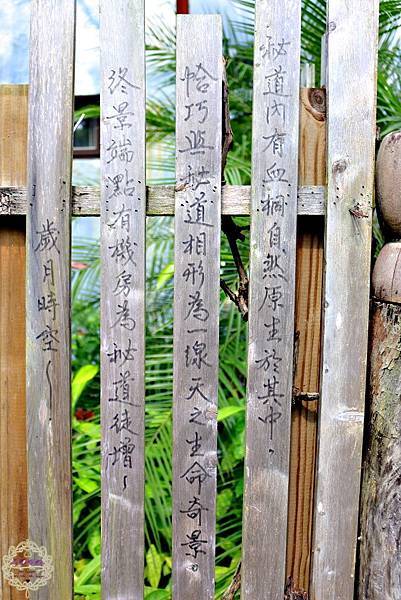 秘道內有血桐自然原生於其中。
恰巧與秘道相形為一線天之生命奇景。
終景端點有機房為秘道徒增～
歲月時空～